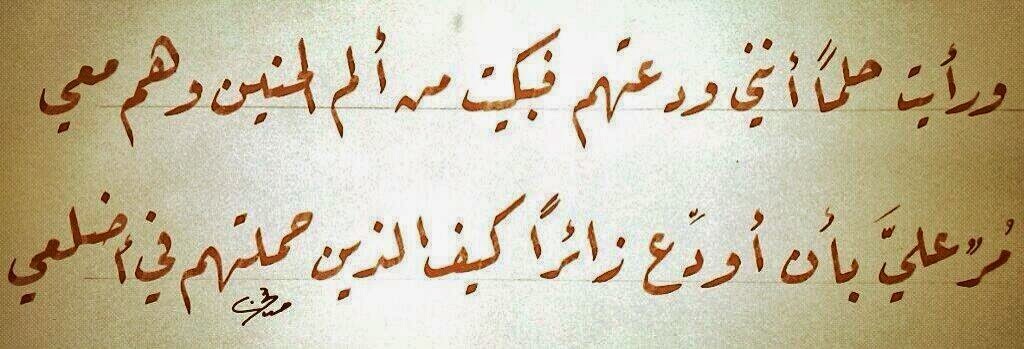 ورأيت حلماً أنني ودعتهم فبكيت من ألم الحنين وهم معي
مُرٌ عليَّ بأن أودّع زائراً كيف الذين حملتهم في أضلعي